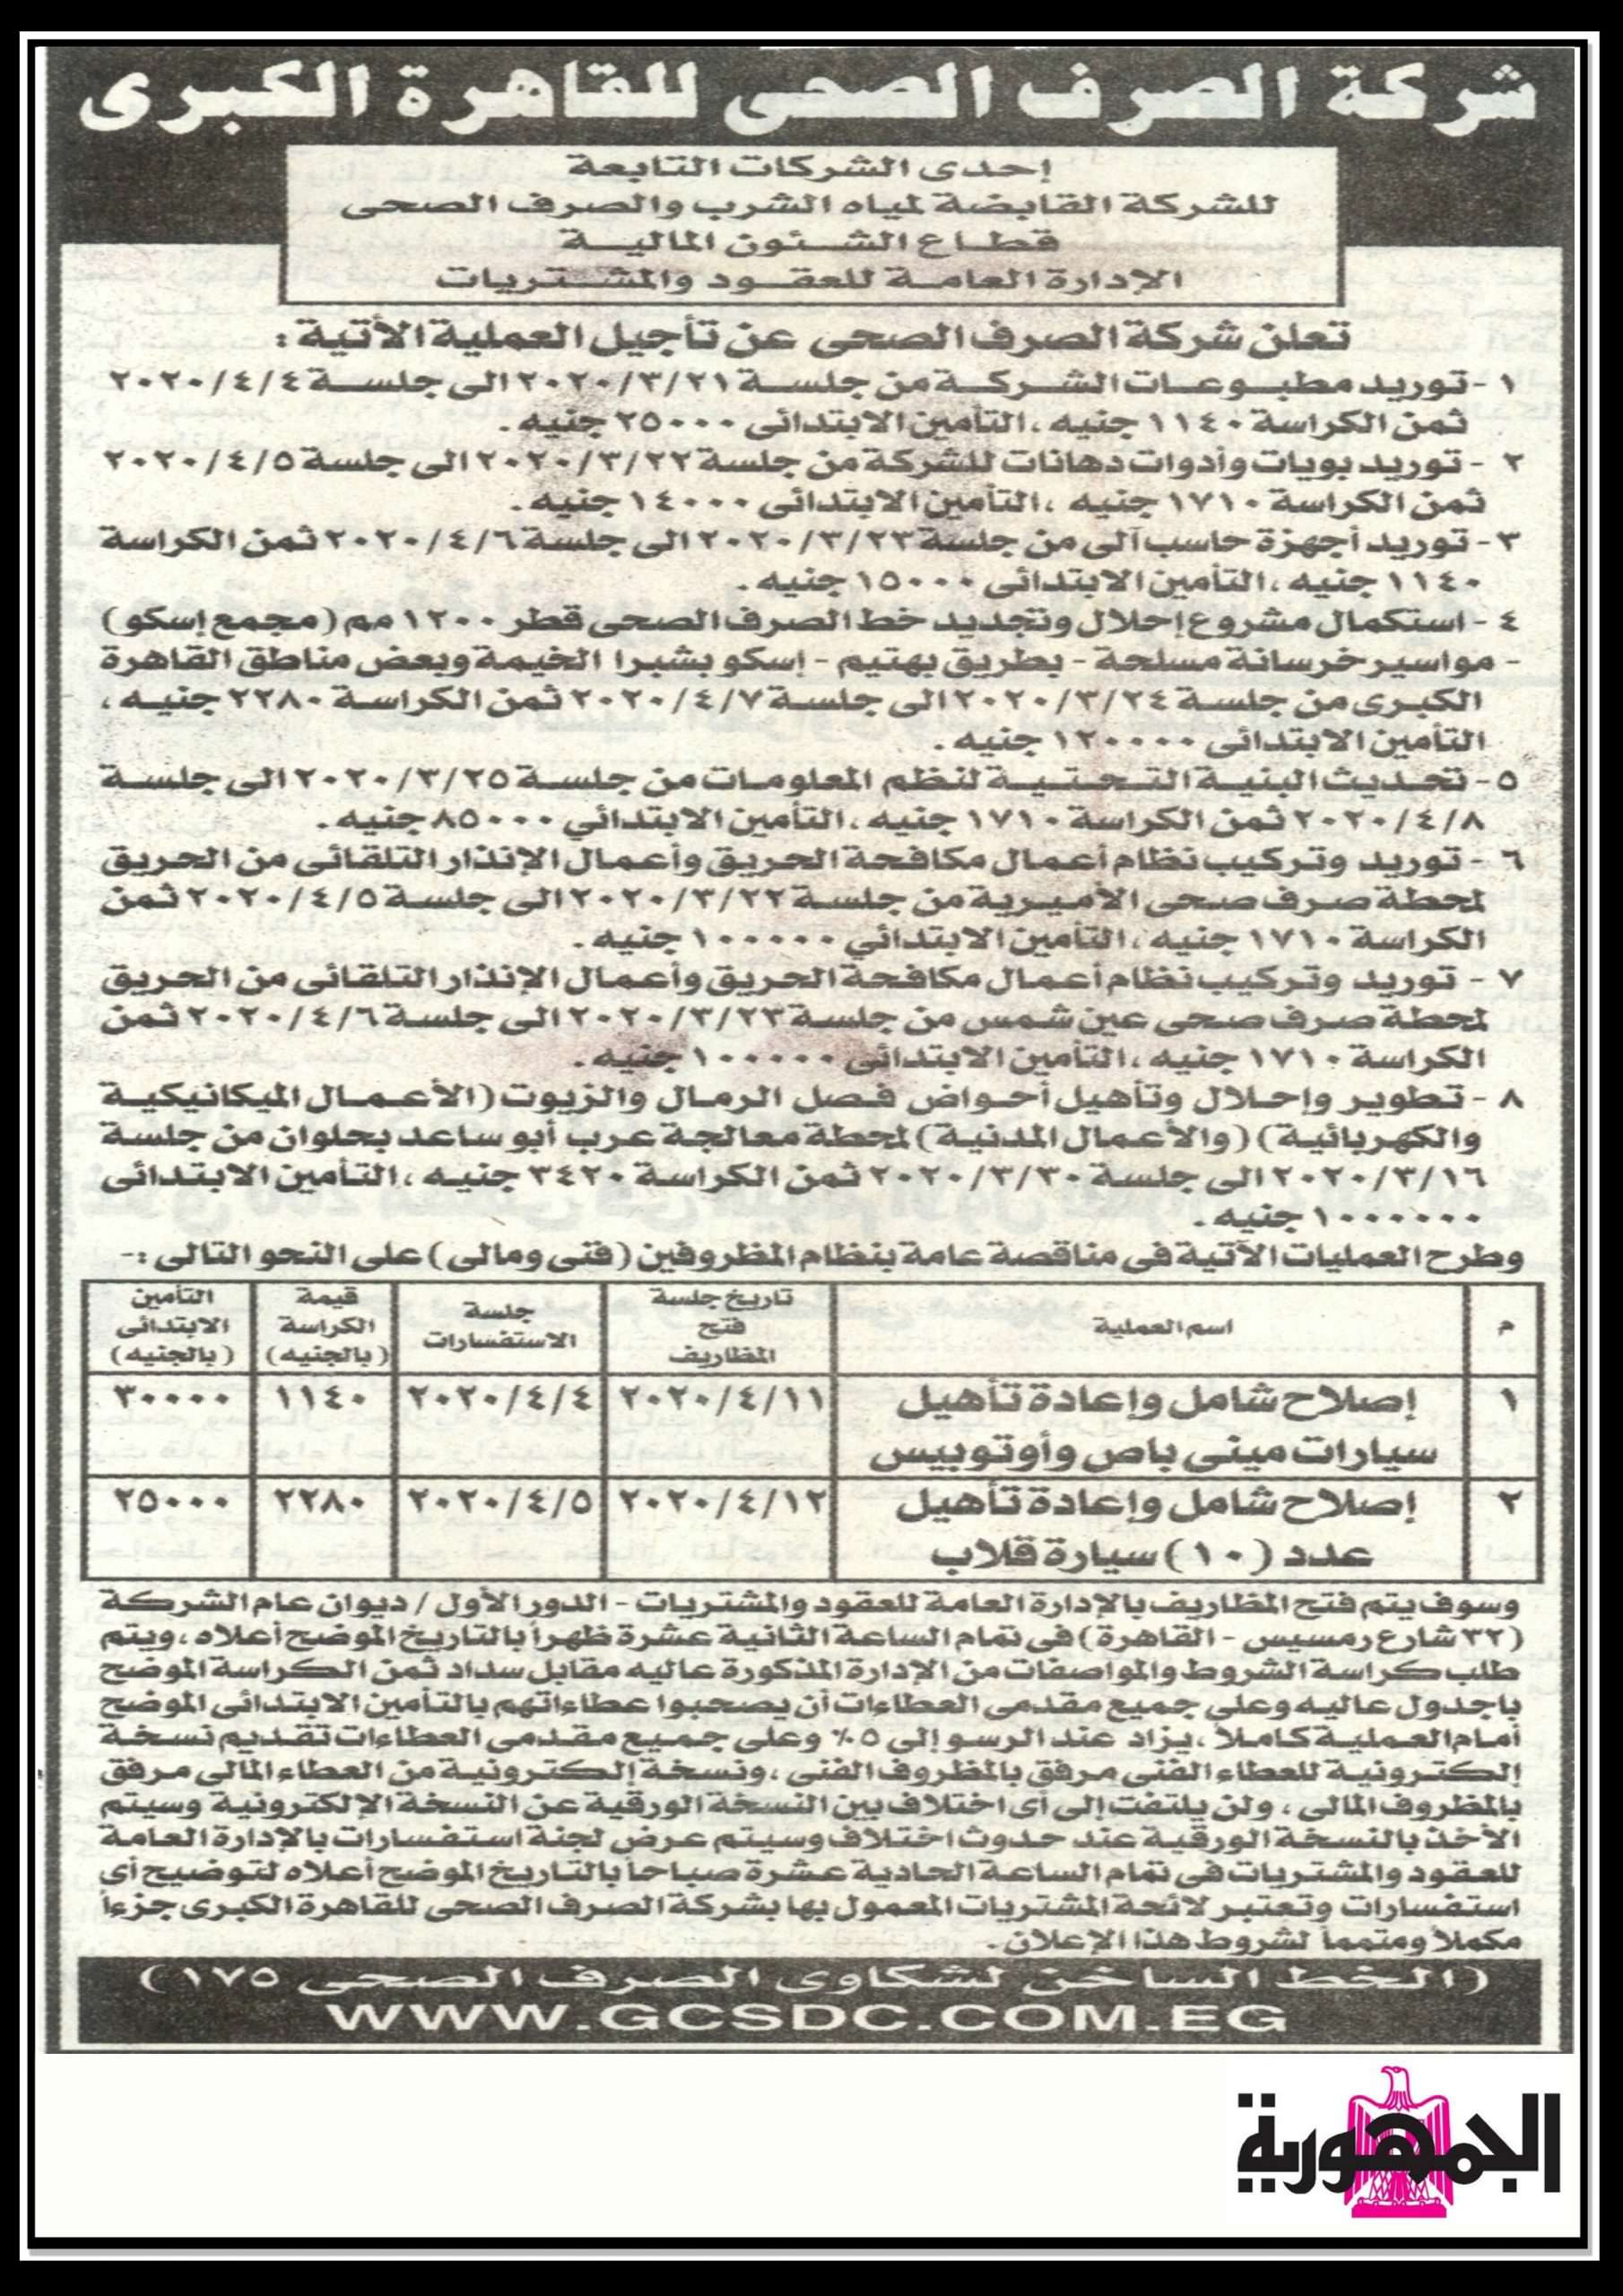 شركة الصرف الصحى للقاهرة الكبرى
إحدى الشركات التابعة
للشركة القابضة لمياه الشرب والصرف الصحى
قطاع الشئون المالية
الإدارة العامة للعقود والمشتريات
تعلن شركة الصرف الصحى عن تأجيل العملية الأتية :
١ - توريد مطبوعات الشركة من جلسة ٢٠٢٠/٣/٢١ الى جلسة ٢٠٢٠/٤/٤
ثمن الكراسة ١١٤٠ جنيه ، التأمين الابتدائى ٢٥٠٠٠ جنيه .
٢ - توريد بويات وأدوات دهانات للشركة من جلسة ٢٠٢٠/٣/٢٢ الى جلسة ٢٠٢٠/٤/٥
ثمن الكراسة ١٧١٠ جنيه ، التأمين الابتدائى ١٤٠٠٠ جنيه .
٣ - توريد أجهزة حاسب آلى من جلسة ٢٠٢٠/٣/٢٣ الى جلسة ٢٠٢٠/٤/٦ ثمن الكراسة
١١٤٠ جنيه ، التأمين الابتدائى ١٥٠٠٠ جنيه .
٤ - استكمال مشروع إحلال وتجديد خط الصرف الصحى قطر ١٢٠٠ مم ( مجمع إسكو )
- مواسير خرسانة مسلحة - بطريق بهتيم - إسكو بشبرا الخيمة وبعض مناطق القاهرة
الكبرى من جلسة ٢٠٢٠/٣/٢٤ الى جلسة ٢٠٢٠/٤/٧ ثمن الكراسة ٢٢٨٠ جنيه ،
التأمين الابتدائى ١٢٠٠٠٠ جنيه .
٥ - تحديث البنية التحتية لنظم المعلومات من جلسة ٢٠٢٠/٣/٢٥ الى جلسة
٢٠٢٠/٤/٨ ثمن الكراسة ١٧١٠ جنيه ، التأمين الابتدائي ٨٥٠٠٠ جنيه .
٦ - توريد وتركيب نظام أعمال مكافحة الحريق وأعمال الإنذار التلقائى من الحريق
لمحطة صرف صحى الأميرية من جلسة ٢٠٢٠/٣/٢٢ الى جلسة ٢٠٢٠/٤/٥ ثمن
الكراسة ١٧١٠ جنيه ، التأمين الابتدائي ١٠٠٠٠٠ جنيه .
٧ - توريد وتركيب نظام أعمال مكافحة الحريق وأعمال الإنذار التلقائى من الحريق
لمحطة صرف صحى عين شمس من جلسة ٢٠٢٠/٣/٢٣ الى جلسة ٢٠٢٠/٤/٦ ثمن
الكراسة ١٧١٠ جنيه ، التأمين الابتدائى ١٠٠٠٠٠ جنيه .
٨ - تطوير وإحلال وتأهيل أحواض فصل الرمال والزيوت ( الأعمال الميكانيكية
والكهربائية ) ( والأعمال المدنية ) لمحطة معالجة عرب أبو ساعد بحلوان من جلسة
٢٠٢٠/٣/١٦ الى جلسة ٢٠٢٠/٣/٣٠ ثمن الكراسة ٣٤٢٠ جنيه ، التأمين الابتدائى
١٠٠٠٠٠٠ جنيه .
وطرح العمليات الآتية فى مناقصة عامة بنظام المظروفين ( فنى ومالى ) على النحو التالى :-
م اسم العملية تاريخ جلسة فتح المظاريف جلسة الاستفسارات قيمة الكراسة ( بالجنيه ) التأمين الابتدائى ( بالجنيه )
١ إصلاح شامل وإعادة تأهيل ٢٠٢٠/٤/١١ ٢٠٢٠/٤/٤ ١١٤٠ ٣٠٠٠٠
سيارات مينى باص وأوتوبيس
٢ إصلاح شامل وإعادة تأهيل ٢٠٢٠/٤/١٢ ٢٠٢٠/٤/٥ ٢٢٨٠ ٢٥٠٠٠
عدد ( ١٠ ) سيارة قلاب
وسوف يتم فتح المظاريف بالإدارة العامة للعقود والمشتريات - الدور الأول / ديوان عام الشركة
( ٣٢ شارع رمسيس - القاهرة ) فى تمام الساعة الثانية عشرة ظهراً بالتاريخ الموضح أعلاه ، ويتم
طلب كراسة الشروط والمواصفات من الإدارة المذكورة عاليه مقابل سداد ثمن الكراسة الموضح
باجدول عاليه وعلى جميع مقدمى العطاءات أن يصحبوا عطاءاتهم بالتأمين الابتدائى الموضح
أمام العملية كاملاً ، يزاد عند الرسو إلى ٥٪ وعلى جميع مقدمى العطاءات تقديم نسخة
إلكترونية للعطاء الفنى مرفق بالمظروف الفنى ، ونسخة إلكترونية من العطاء المالى مرفق
بالمظروف المالى ، ولن يلتفت إلى أى اختلاف بين النسخة الورقية عن النسخة الإلكترونية وسيتم
الأخذ بالنسخة الورقية عند حدوث اختلاف وسيتم عرض لجنة استفسارات بالإدارة العامة
للعقود والمشتريات فى تمام الساعة الحادية عشرة صباحاً بالتاريخ الموضح أعلاه لتوضيح أى
استفسارات وتعتبر لائحة المشتريات المعمول بها بشركة الصرف الصحى للقاهرة الكبرى جزءاً
مكملاً ومتمماً لشروط هذا الإعلان .
( الخط الساخن لشكاوى الصرف الصحى ١٧٥ )
WWW.GCSDC.COM.EG
الجمهورية